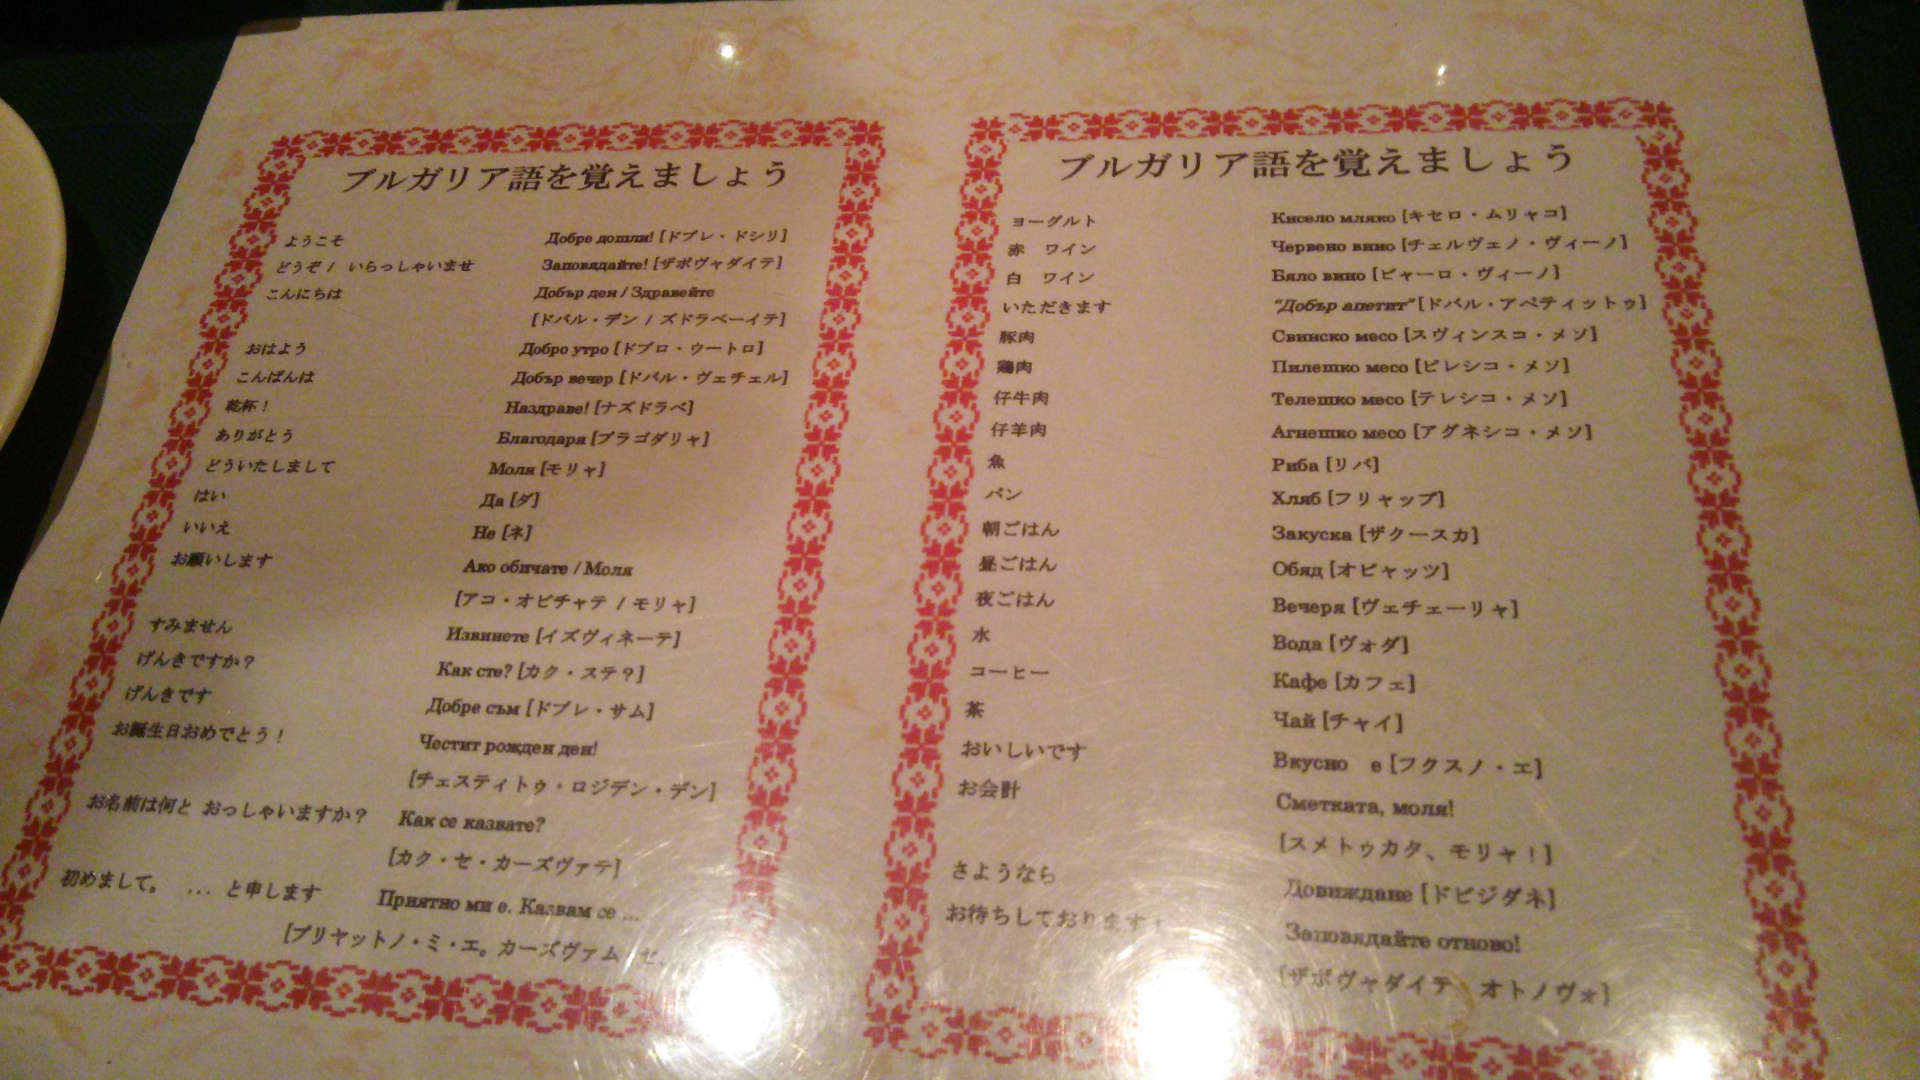 ブルガリア語を覚えましょう
ようこそ Добре дошли! [ドブレ・ドシリ]
どうぞ / いらっしゃいませ Заповядайте! [ザポヴァダイテ]
こんにちは Добър ден / Здравейте
[ドバル・デン / ズドラベーイテ]
おはよう Добро утро [ドブロ・ウートロ]
こんばんは Добър вечер [ドバル・ヴェチェル]
乾杯！ Наздраве! [ナズドラベ]
ありがとう Благодаря [ブラゴダリャ]
どういたしまして Моля [モリャ]
はい Да [ダ]
いいえ Не [ネ]
お願いします Ако обичате / Моля
[アコ・オビチャテ / モリャ]
すみません Извинете [イズヴィネーテ]
げんきですか？ Как сте? [カク・ステ？]
げんきです Добре съм [ドブレ・サム]
お誕生日おめでとう！ Честит рожден ден!
[チェスティトゥ・ロジデン・デン]
お名前は何と おっしゃいますか？ Как се казвате?
[カク・セ・カーズヴァテ]
初めまして。 ... と申します Приятно ми е. Казвам се ...
[プリヤットノ・ミ・エ。カーズヴァム セ
ブルガリア語を覚えましょう
ヨーグルト Кисело мляко [キセロ・ムリャコ]
赤 ワイン Червено вино [チェルヴェノ・ヴィーノ]
白 ワイン Бяло вино [ビャーロ・ヴィーノ]
いただきます "Добър апетит" [ドバル・アペティットゥ]
豚肉 Свинско месо [スヴィンスコ・メソ]
鶏肉 Пилешко месо [ピレシコ・メソ]
仔牛肉 Телешко месо [テレシコ・メソ]
仔羊肉 Агнешко месо [アグネシコ・メソ]
魚 Риба [リバ]
パン Хляб [フリャップ]
朝ごはん Закуска [ザクースカ]
昼ごはん Обяд [オビャッツ]
夜ごはん Вечеря [ヴェチェーリャ]
水 Вода [ヴォダ]
コーヒー Кафе [カフェ]
茶 Чай [チャイ]
おいしいです Вкусно е [フクスノ・エ]
お会計 Сметката, моля!
[スメトゥカタ、モリャ！]
さようなら Довиждане [ドビジダネ]
お待ちしております！ Заповядайте отново!
[ザポヴャダイテ オトノヴォ]